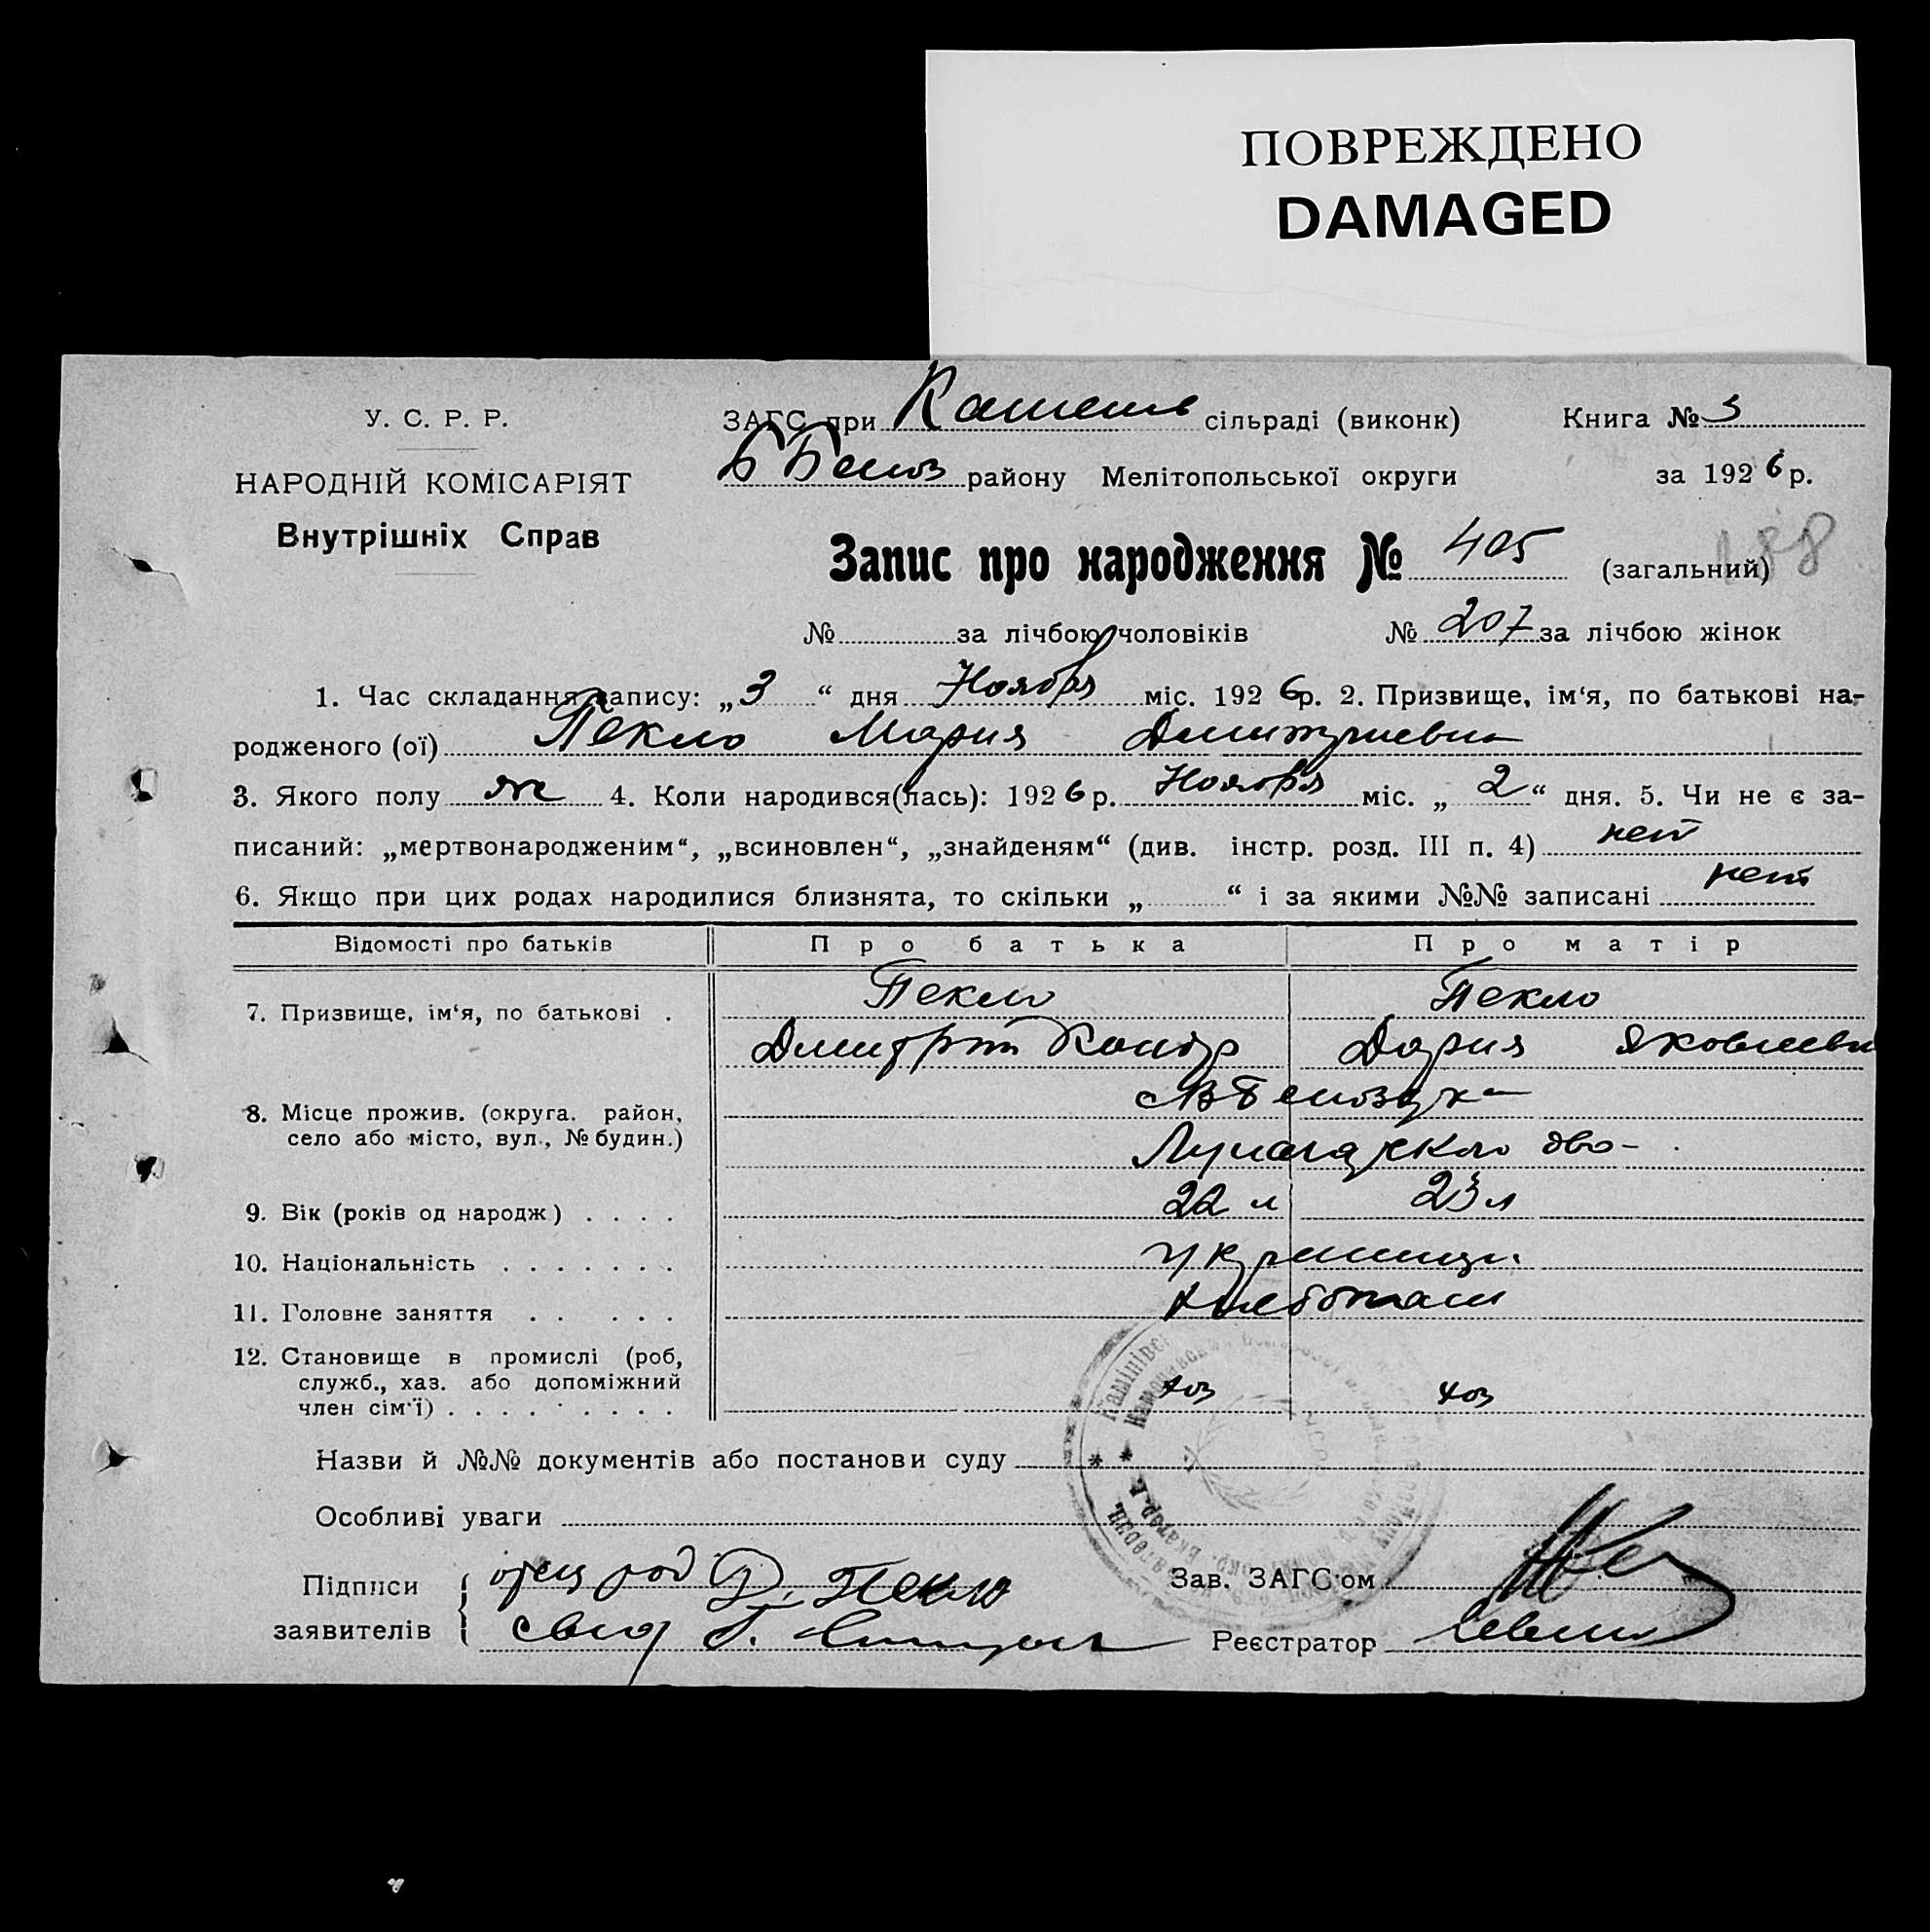 ПОВРЕЖДЕНО
DAMAGED
У. С. Р. Р.
НАРОДНІЙ КОМІСАРІЯТ
Внутрішніх Справ
ЗАГС при сільраді (виконк) Книга № 3
району Мелітопольської округи за 1926 р.
Запис про народження № 405 (загальний) 188
№ за лічбою чоловіків № 207 за лічбою жінок
1. Час складання запису: „3“ дня Ноября міс. 1926 р. 2. Призвище, ім‘я, по батькові на-
родженого (ої) Пекло Мария Дмитриевна
3. Якого полу ж 4. Коли народився(лась): 1926 р. Ноября міс. „2“ дня. 5. Чи не є за-
писаний: „мертвонародженим“, „всиновлен“, „знайденям“ (див. інстр. розд. III п. 4) нет
6. Якщо при цих родах народилися близнята, то скільки „ “ і за якими №№ записані нет
Відомості про батьків Про батька Про матір
7. Призвище, ім‘я, по батькові . Пекло Пекло
Дмитрий Дария Яковлевн
8. Місце прожив. (округа. район,
село або місто, вул., № будин.)
9. Вік (років од народж) . . . . 22 л 23 л
10. Національність . . . . . . . украинцы
11. Головне заняття . . . . . хлебопаш
12. Становище в промислі (роб,
служб., хаз. або допоміжний
член сім‘ї) . . . . . . . . . хоз хоз
Назви й №№ документів або постанови суду
Особливі уваги
Підписи отец Пекло Зав. ЗАГС‘ом
заявителів Реєстратор